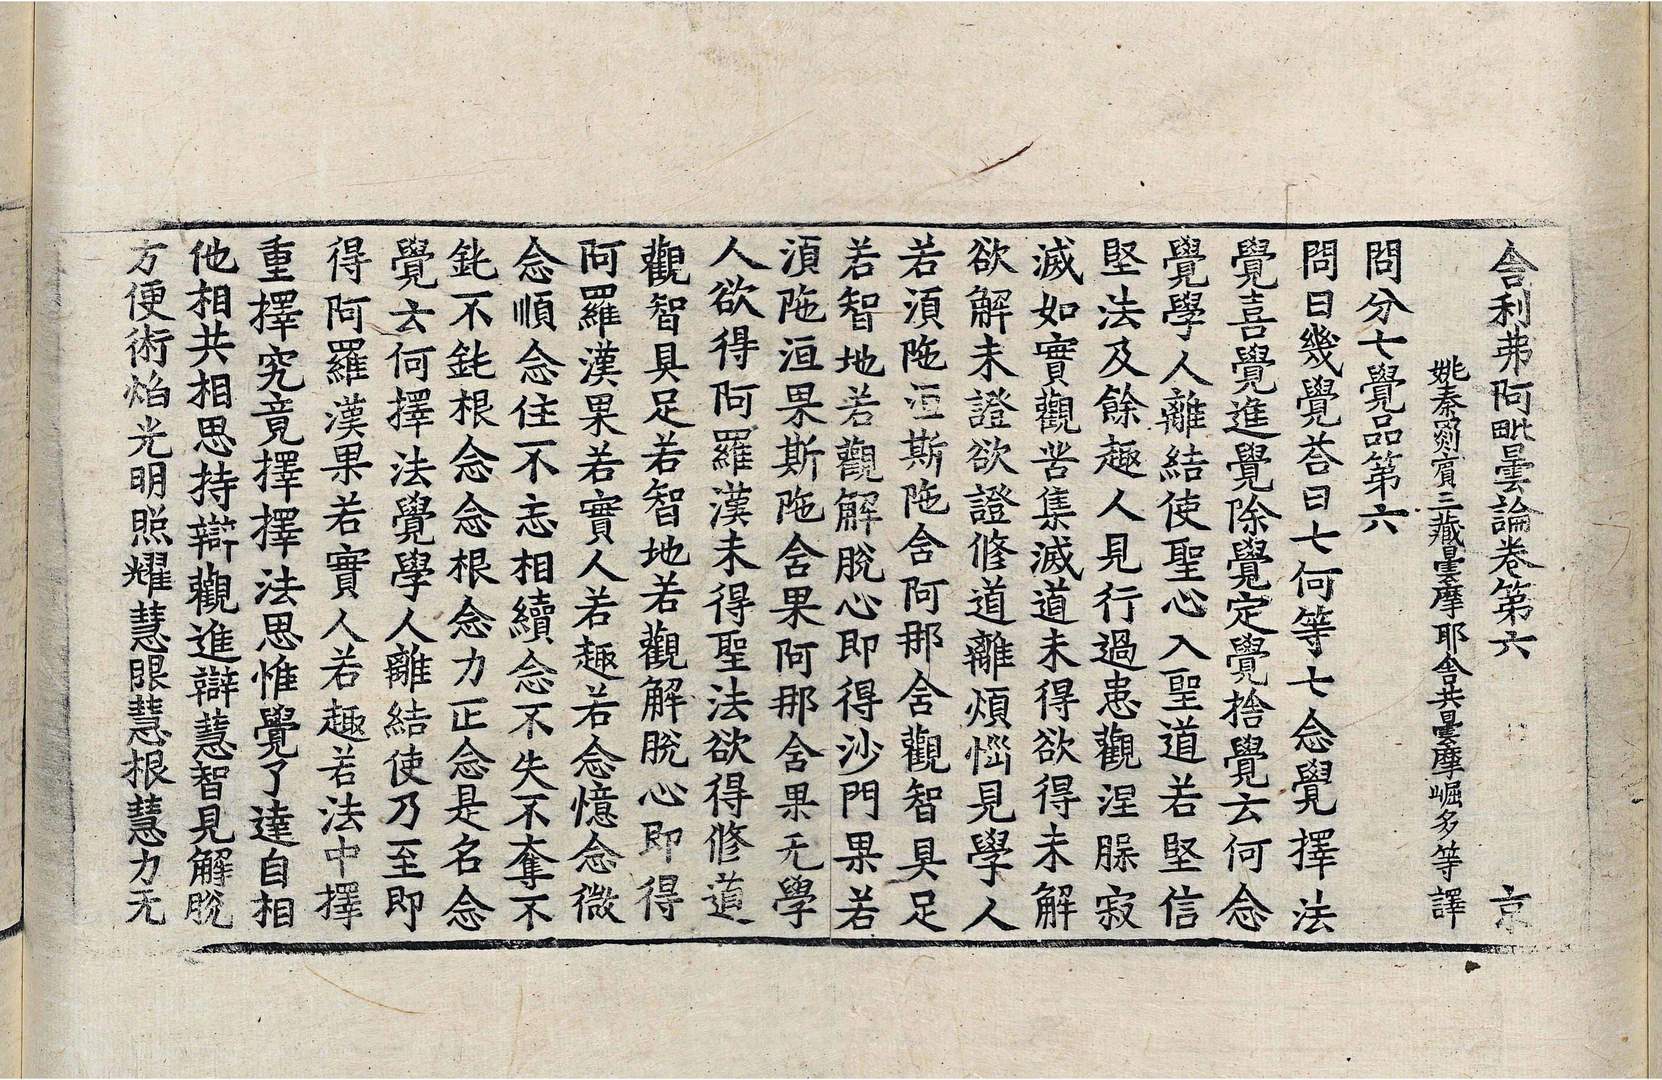 舎利弗阿毗曇論卷第六 京
姚秦罽賓三藏曇摩耶舍共曇摩崛多等譯
問分七覺品第六
問曰幾覺荅曰七何等七念覺擇法
覺喜覺進覺除覺定覺捨覺云何念
覺學人離結使聖心入聖道若堅信
堅法及餘趣人見行過患觀涅槃寂
滅如實觀苦集滅道未得欲得未解
欲解未證欲證修道離煩惱見學人
若須陁洹斯陁含阿那含觀智具足
若智地若觀解脫心即得沙門果若
須陁洹果斯陁含果阿那含果无學
人欲得阿羅漢未得聖法欲得修道
觀智具足若智地若觀解脫心即得
阿羅漢果若實人若趣若念憶念微
念順念住不忘相續念不失不奪不
鈍不鈍根念念根念力正念是名念
覺云何擇法覺學人離結使乃至即
得阿羅漢果若實人若趣若法中擇
重擇究竟擇擇法思惟覺了達自相
他相共相思持辯觀進辯慧智見解脫
方便術焰光明照耀慧眼慧根慧力无